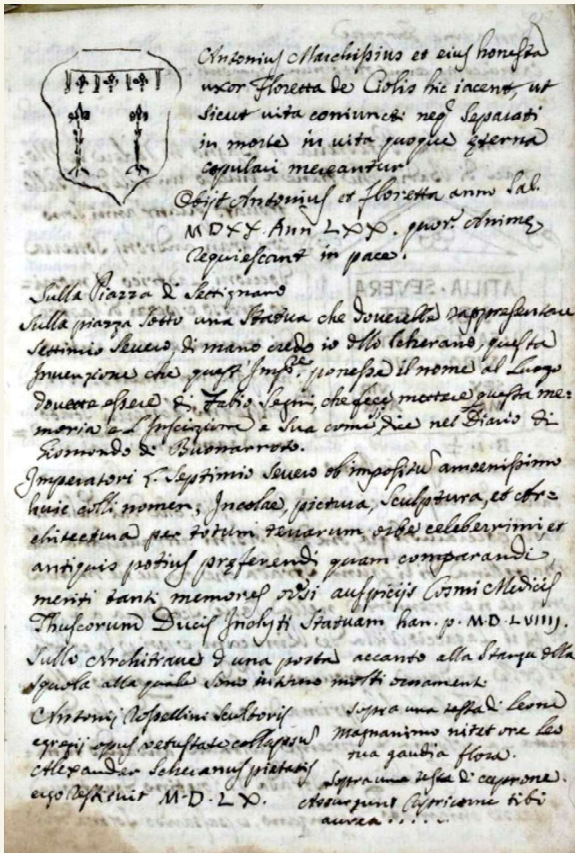 Antonius Marchissius et eius honesta
uxor Floretta de Ciolis hic iacent, ut
sicut vita coniuncti neq. separati
in morte in vita quoque æterna
copulari mereantur.
Obijt Antonius et Floretta anno Sal.
MDXX. Ann LXX. quor. Animę
requiescant in pace.
Sulla Piazza di Settignano
Sulla piazza sotto una Statua che doverebbe rappresentare
Settimio Severo, di mano credo io dello questa
Invenzione che quest' ponesse il nome al Luogo
dovette essere di Fabio Segni, che fece mettere questa me=
moria e l'Inscrizione è sua come dice nel Diario di
Gismondo di Buonarroto.
Imperatori L. Septimio Severo ob impositũ amoenissimo
huic colli nomen, Incolae, pictura, sculptura, et Ar=
chitectura per totum terrarum orbe celeberrimi et
antiquis potius præferendi quam comparandi
meriti tanti memores auspicijs Cosmi Medicis
Thuscorum Ducis Inclyti Statuam han. p. M.D.LVIIII.
Sullo Architrave d'una porta accanto alla Stanza della
squola alla quale sono intorno molti ornament.
Antonij Rossellini Scultoris
egregij opus vetustate collapsus
Alexander pietatis
ergo restituit M.D.LX.
Sopra una testa di leone
magnanimo nitet ore leo
tua gaudia flora.
Sopra una testa di caprone.
Assurgunt Capricorne tibi
aurea . . . . .
ATILIA · SEVERA